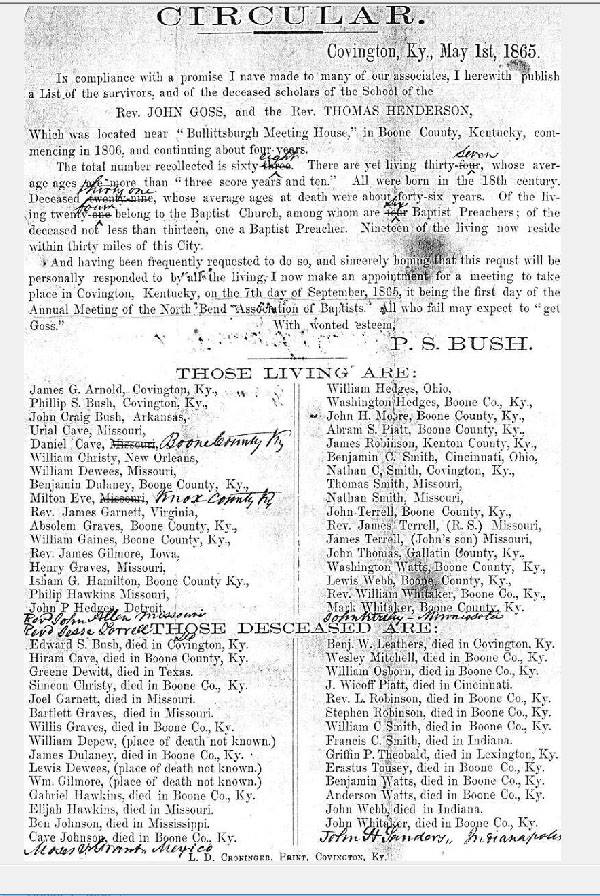 CIRCULAR.
Covington, Ky., May 1st, 1865.
In compliance with a promise I have made to many of our associates, I herewith publish
a List of the survivors, and of the deceased scholars of the School of the
Rev. JOHN GOSS, and the Rev. THOMAS HENDERSON,
Which was located near "Bullittsburgh Meeting House," in Boone County, Kentucky, com-
mencing in 1806, and continuing about four years.
eight seven
The total number recollected is sixty-three. There are yet living thirty-four, whose aver-
age ages are more than "three score years and ten." All were born in the 18th century.
thirty one
Deceased twenty-nine, whose average ages at death were about forty-six years. Of the liv-
four six
ing twenty-one belong to the Baptist Church, among whom are four Baptist Preachers; of the
deceased not less than thirteen, one a Baptist Preacher. Nineteen of the living now reside
within thirty miles of this City.
And having been frequently requested to do so, and sincerely hoping that this requst will be
personally responded to by all the living, I now make an appointment for a meeting to take
place in Covington, Kentucky, on the 7th day of September, 1865, it being the first day of the
Annual Meeting of the North Bend "Association of Baptists." All who fail may expect to "get
Goss."
With wonted esteem,
P. S. BUSH.
THOSE LIVING ARE:
James G. Arnold, Covington, Ky.,
Phillip S. Bush, Covington, Ky.,
John Craig Bush, Arkansas,
Urial Cave, Missouri,
Daniel Cave, Missouri, Boone County Ky
William Christy, New Orleans,
William Dewees, Missouri,
Benjamin Dulaney, Boone County, Ky.,
Milton Eve, Missouri, Knox County Ky
Rev. James Garnett, Virginia,
Absolem Graves, Boone County, Ky.,
William Gaines, Boone County, Ky.,
Rev. James Gilmore, Iowa,
Henry Graves, Missouri,
Isham G. Hamilton, Boone County Ky.,
Philip Hawkins Missouri,
John P Hedges, Detroit,
Revd John Allen Missouri
Revd Jesse Terrell
William Hedges, Ohio,
Washington Hedges, Boone Co., Ky.,
John H. Moore, Boone County, Ky.,
Abram S. Piatt, Boone County, Ky.,
James Robinson, Kenton County, Ky.,
Benjamin C. Smith, Cincinnati, Ohio,
Nathan C, Smith, Covington, Ky.,
Thomas Smith, Missouri,
Nathan Smith, Missouri,
John Terrell, Boone County, Ky.,
Rev. James Terrell, (R. S.) Missouri,
James Terrell, (John's son) Missouri,
John Thomas, Gallatin County, Ky.,
Washington Watts, Boone County, Ky.,
Lewis Webb, Boone County, Ky.,
Rev. William Whitaker, Boone Co., Ky.,
Mark Whitaker, Boone County, Ky.
John - Minnesota
THOSE DESCEASED ARE:
Edward S. Bush, died in Covington, Ky.
Hiram Cave, died in Boone County, Ky.
Greene Dewitt, died in Texas.
Simeon Christy, died in Boone Co., Ky.
Joel Garnett, died in Missouri.
Bartlett Graves, died in Missouri.
Willis Graves, died in Boone Co., Ky.
William Depew, (place of death not known.)
James Dulaney, died in Boone Co., Ky.
Lewis Dewees, (place of death not known.)
Wm. Gilmore, (place of death not known.)
Gabriel Hawkins, died in Boone Co., Ky.
Elijah Hawkins, died in Missouri.
Ben Johnson, died in Mississippi.
Cave Johnson, died in Boone Co., Ky.
Moses V Grant Mexico
Benj. W. Leathers, died in Covington, Ky.
Wesley Mitchell, died in Boone Co., Ky.
William Osborn, died in Boone Co., Ky.
J. Wicoff Piatt, died in Cincinnati.
Rev. L. Robinson, died in Boone Co., Ky.
Stephen Robinson, died in Boone Co., Ky.
William C Smith, died in Boone Co., Ky.
Francis C. Smith, died in Indiana.
Griffin P. Theobald, died in Lexington, Ky.
Erastus Tousey, died in Boone Co., Ky.
Benjamin Watts, died in Boone Co., Ky.
Anderson Watts, died in Boone Co., Ky.
John Webb, died in Indiana.
John Whitaker, died in Boone Co., Ky.
John H Sanders, Indianapolis
L. D. Croninger, Print, Covington, Ky.